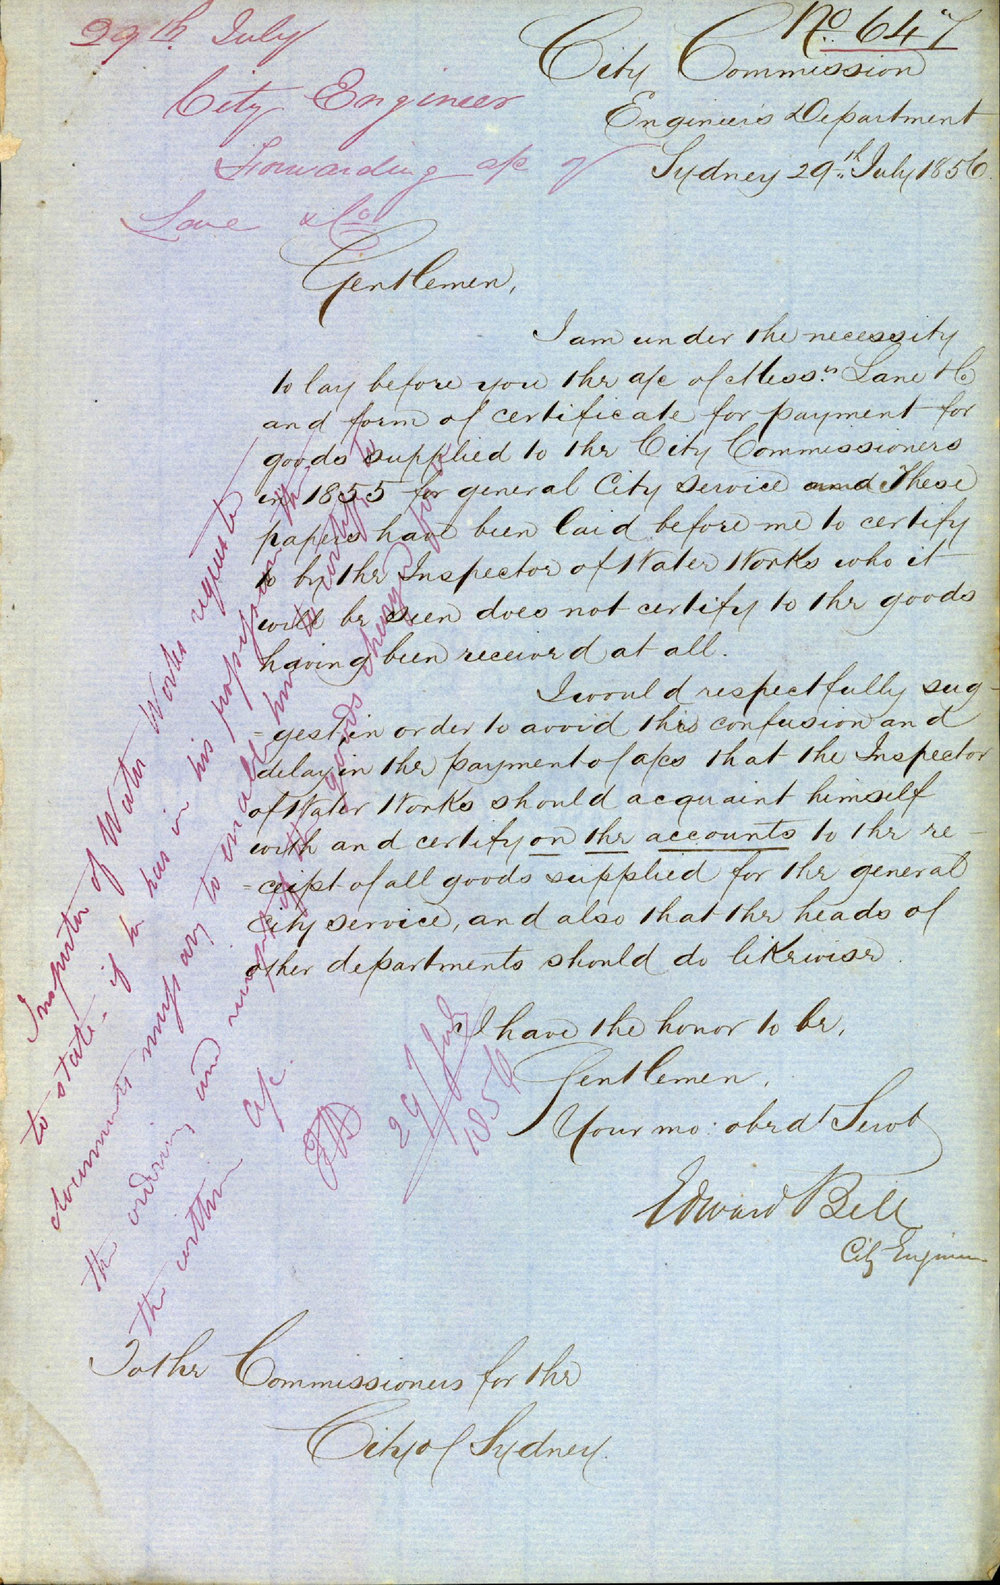 No 647
29th July
City Engineer
Forwarding a/c of
Lane & Co
City Commission
Engineer's Department
Sydney 29th July 1856.
Gentlemen,
I am under the necessity
to lay before you the a/c of Messrs Lane & Co
and form of certificate for payment for
goods supplied to the City Commissioners
in 1855 for general City service and These
papers have been laid before me to certify
to by the Inspector of Water Works who it
will be seen does not certify to the goods
having been received at all.
I would respectfully sug-
=gest in order to avoid this confusion and
delay in the payment of a/cs that the Inspector
of Water Works should acquaint himself
with and certify on the accounts to the re-
=ceipt of all goods supplied for the general
City service, and also that the heads of
other departments should do likewise.
I have the honor to be,
Gentlemen,
Your mo: obedt Servt
Edward Bell
City Engineer
To the Commissioners for the
City of Sydney.
Inspector of Water Works requested
to state - if he has in his possession the
documents necessary to enable him to certify to
the ordering and receipt of the goods charged for in
the within a/c.
29/July
1856